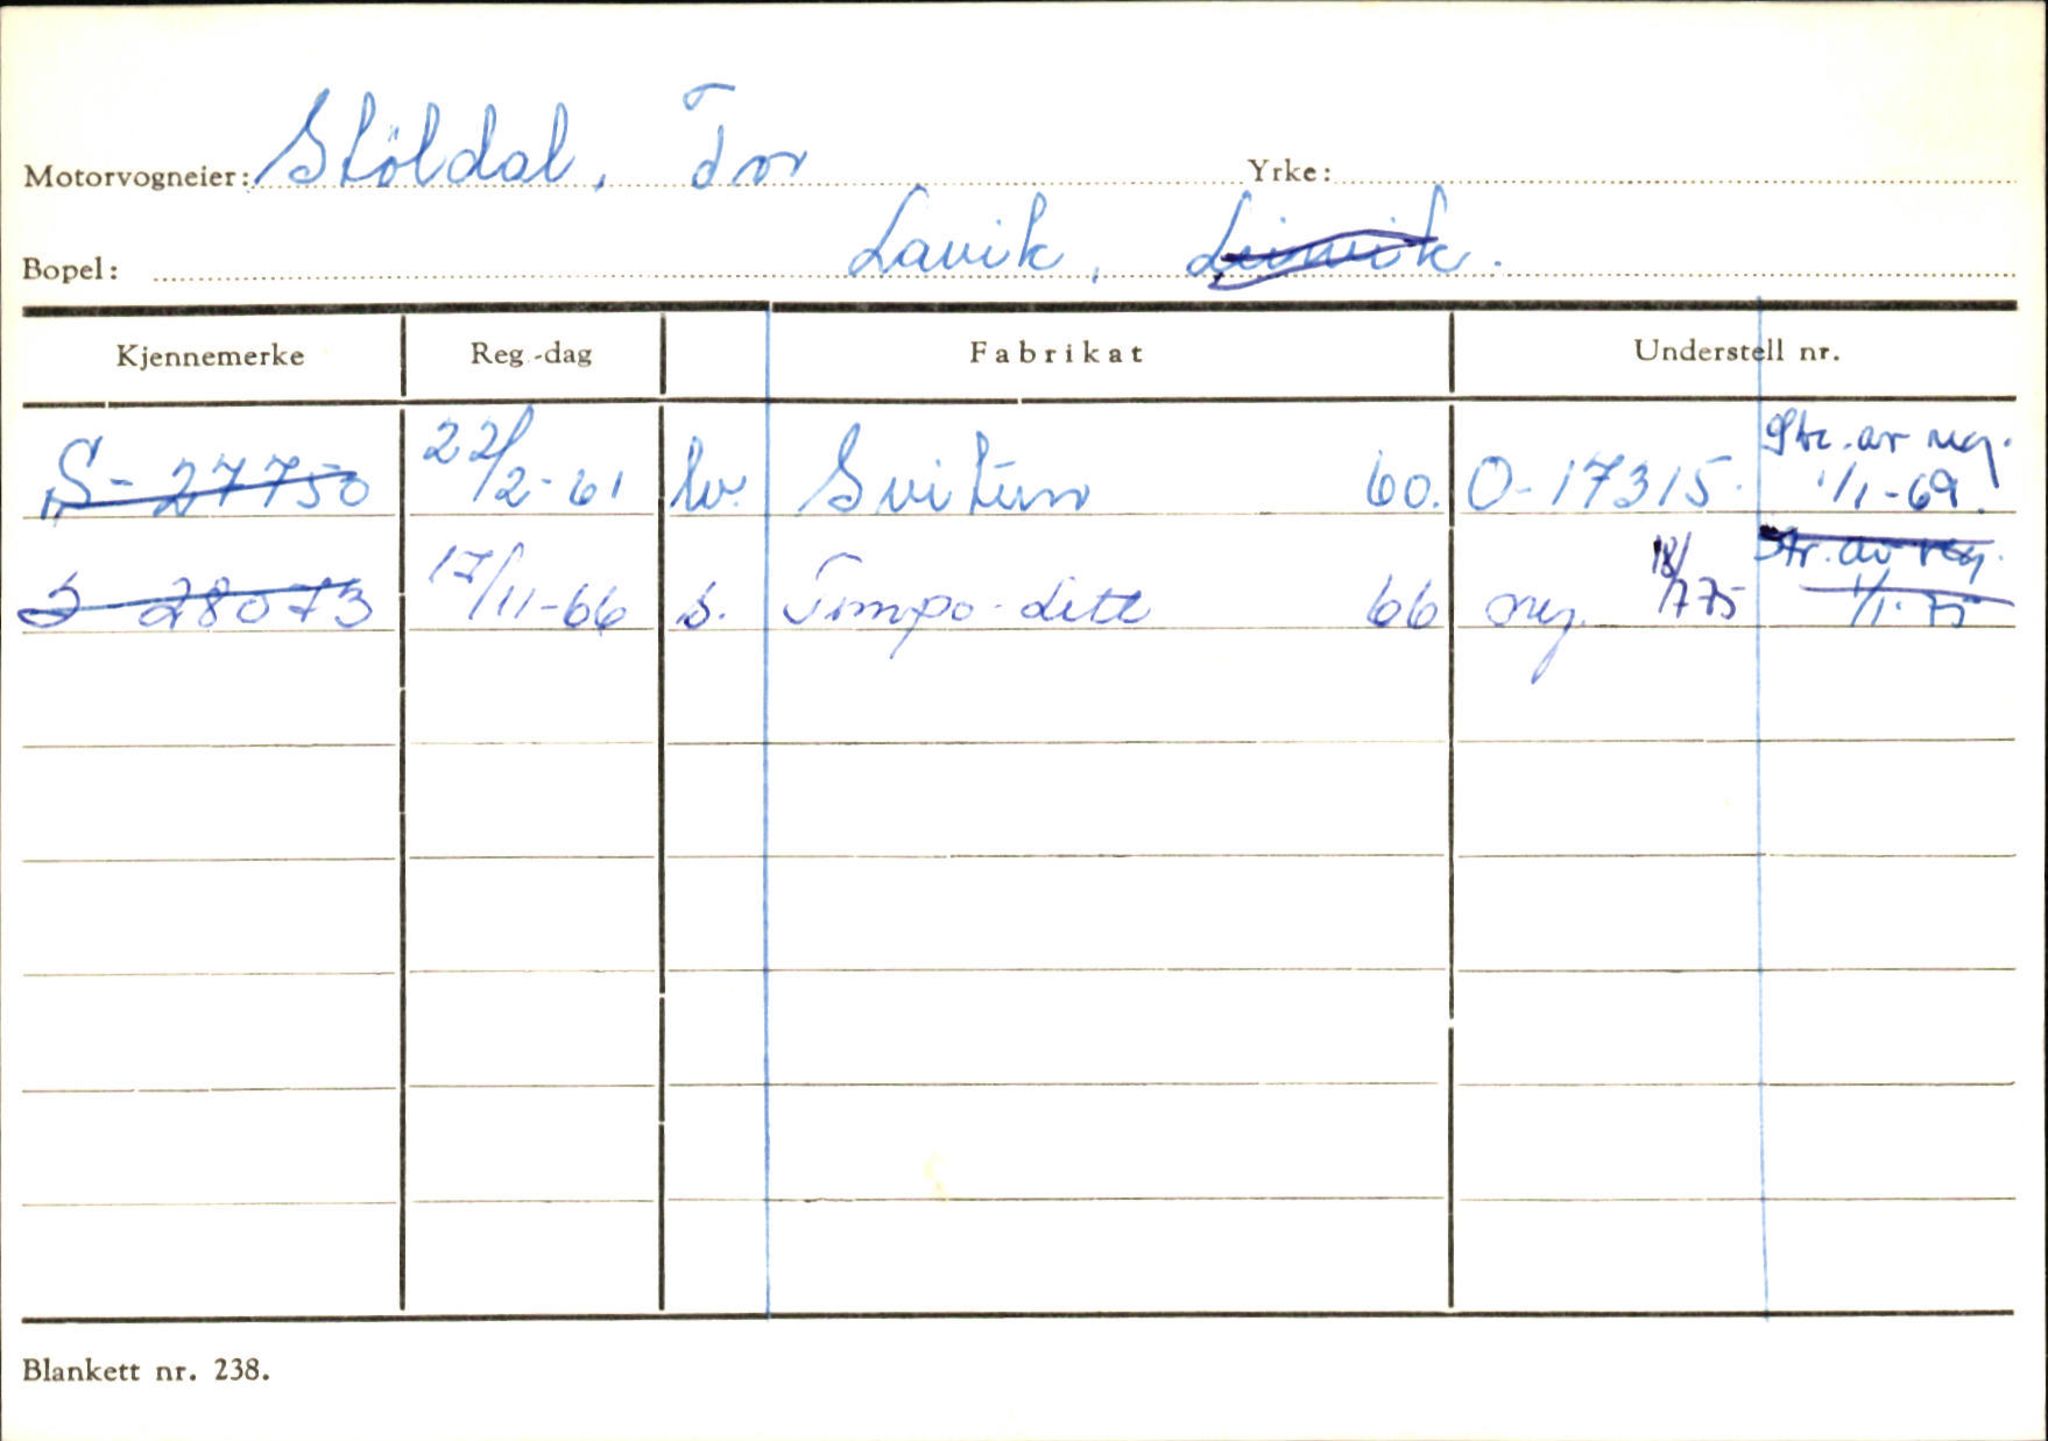 Motorvogneier: Stöldal, Tor Yrke:
Bopel: Lavik, Leirvik.
Kjennemerke Reg.-dag Fabrikat Understell nr.
S-27750 22/2-61 lv. Svitun 60. O-17315. Str. av reg. 1/1-69.
S 28073 17/11-66 s. Tempo-Lett 66 18/775 Str. av reg. 1/1-75
Blankett nr. 238.